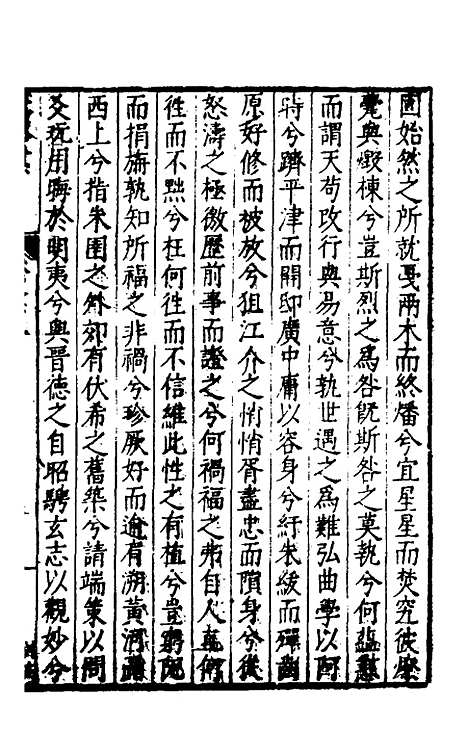 固始然之所就戛兩木而終燔兮宜星星而焚究彼
爨與燬棟兮豈斯烈之為咎既斯咎之莫執兮何蘊慧
而謂天苟改行與易意兮孰世遇之為難弘曲學以阿
時兮躋平津而開邸廣中庸以容身兮紆朱紱而
原好修而被放兮狙江介之悄悄胥盡忠而隕身兮從
怒濤之極徼歷前事而證之兮何禍福之弗自人
徃而不黜兮枉何徃而不信維此性之有植兮豈窮
而捐旃孰知所福之非禍兮珍厥好而逾有溯黃河
西上兮指朱圉之外郊有伏希之舊築兮請端策以問
爻玩用晦於明夷兮與晉德之自昭騁玄志以觀妙兮